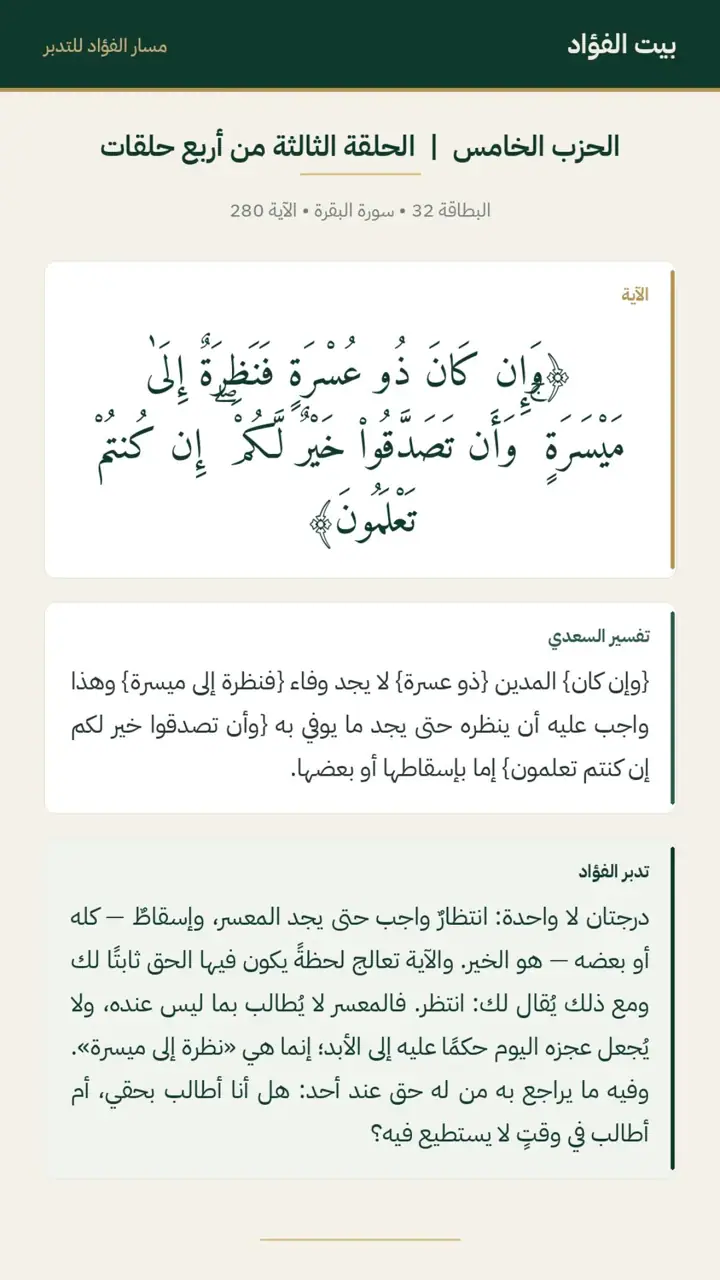 بيت الفؤاد
مسار الفؤاد للتدبر
الحزب الخامس | الحلقة الثالثة من أربع حلقات
البطاقة 32 • سورة البقرة • الآية 280
الآية
﴿وَإِن كَانَ ذُو عُسْرَةٍ فَنَظِرَةٌ إِلَىٰ
مَيْسَرَةٍ ۚ وَأَن تَصَدَّقُوا۟ خَيْرٌ لَّكُمْ ۖ إِن كُنتُمْ
تَعْلَمُونَ﴾
تفسير السعدي
{وإن كان} المدين {ذو عسرة} لا يجد وفاء {فنظرة إلى ميسرة} وهذا
واجب عليه أن ينظره حتى يجد ما يوفي به {وأن تصدقوا خير لكم
إن كنتم تعلمون} إما بإسقاطها أو بعضها.
تدبر الفؤاد
درجتان لا واحدة: انتظارٌ واجب حتى يجد المعسر، وإسقاطٌ — كله
أو بعضه — هو الخير. والآية تعالج لحظةً يكون فيها الحق ثابتًا لك
ومع ذلك يُقال لك: انتظر. فالمعسر لا يُطالب بما ليس عنده، ولا
يُجعل عجزه اليوم حكمًا عليه إلى الأبد؛ إنما هي «نظرة إلى ميسرة».
وفيه ما يراجع به من له حق عند أحد: هل أنا أطالب بحقي، أم
أطالب في وقتٍ لا يستطيع فيه؟